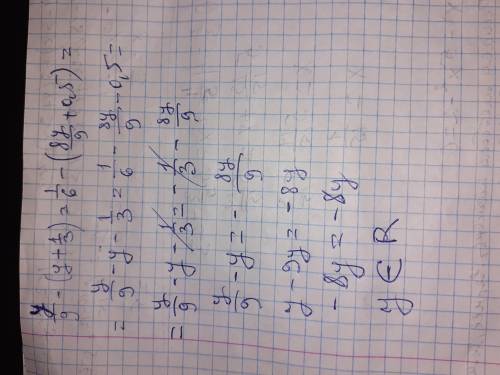 y/9 - (y + 1/3) = 1/6 - (8y/9 + 0,5) =
= y/9 - y - 1/3 = 1/6 - 8y/9 - 0,5 =
= y/9 - y - 1/3 = - 1/3 - 8y/9
y/9 - y = - 8y/9
y - 9y = -8y
- 8y = -8y
y ∈ R